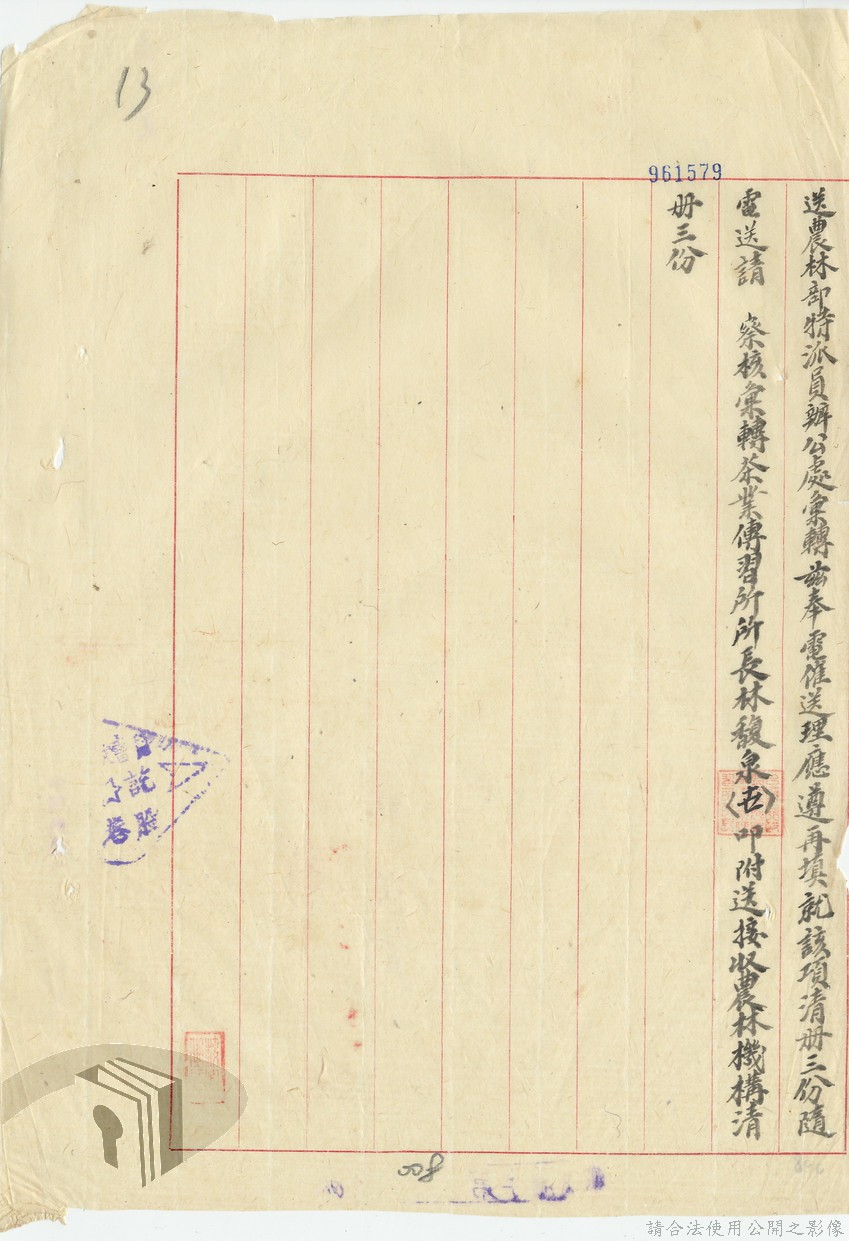 13
961579
送農林部特派員辦公處彙轉茲奉電催送理應遵再填就該項清册三份隨
電送請 察核彙轉茶業傳習所所長林馥泉〈世〉叩附送接收農林機構清
册三份
800
請合法使用公開之影像